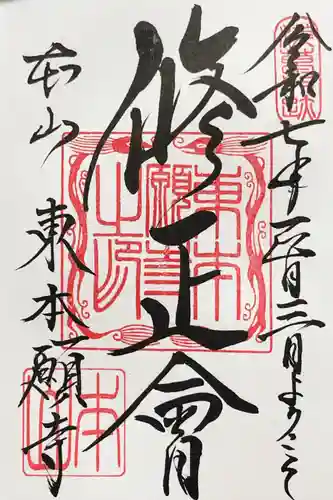 令和七年一月三日ようこそ
修正會
本山 東本願寺
東本願寺之印
本山